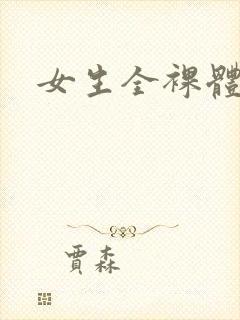 女生全裸體
賈森